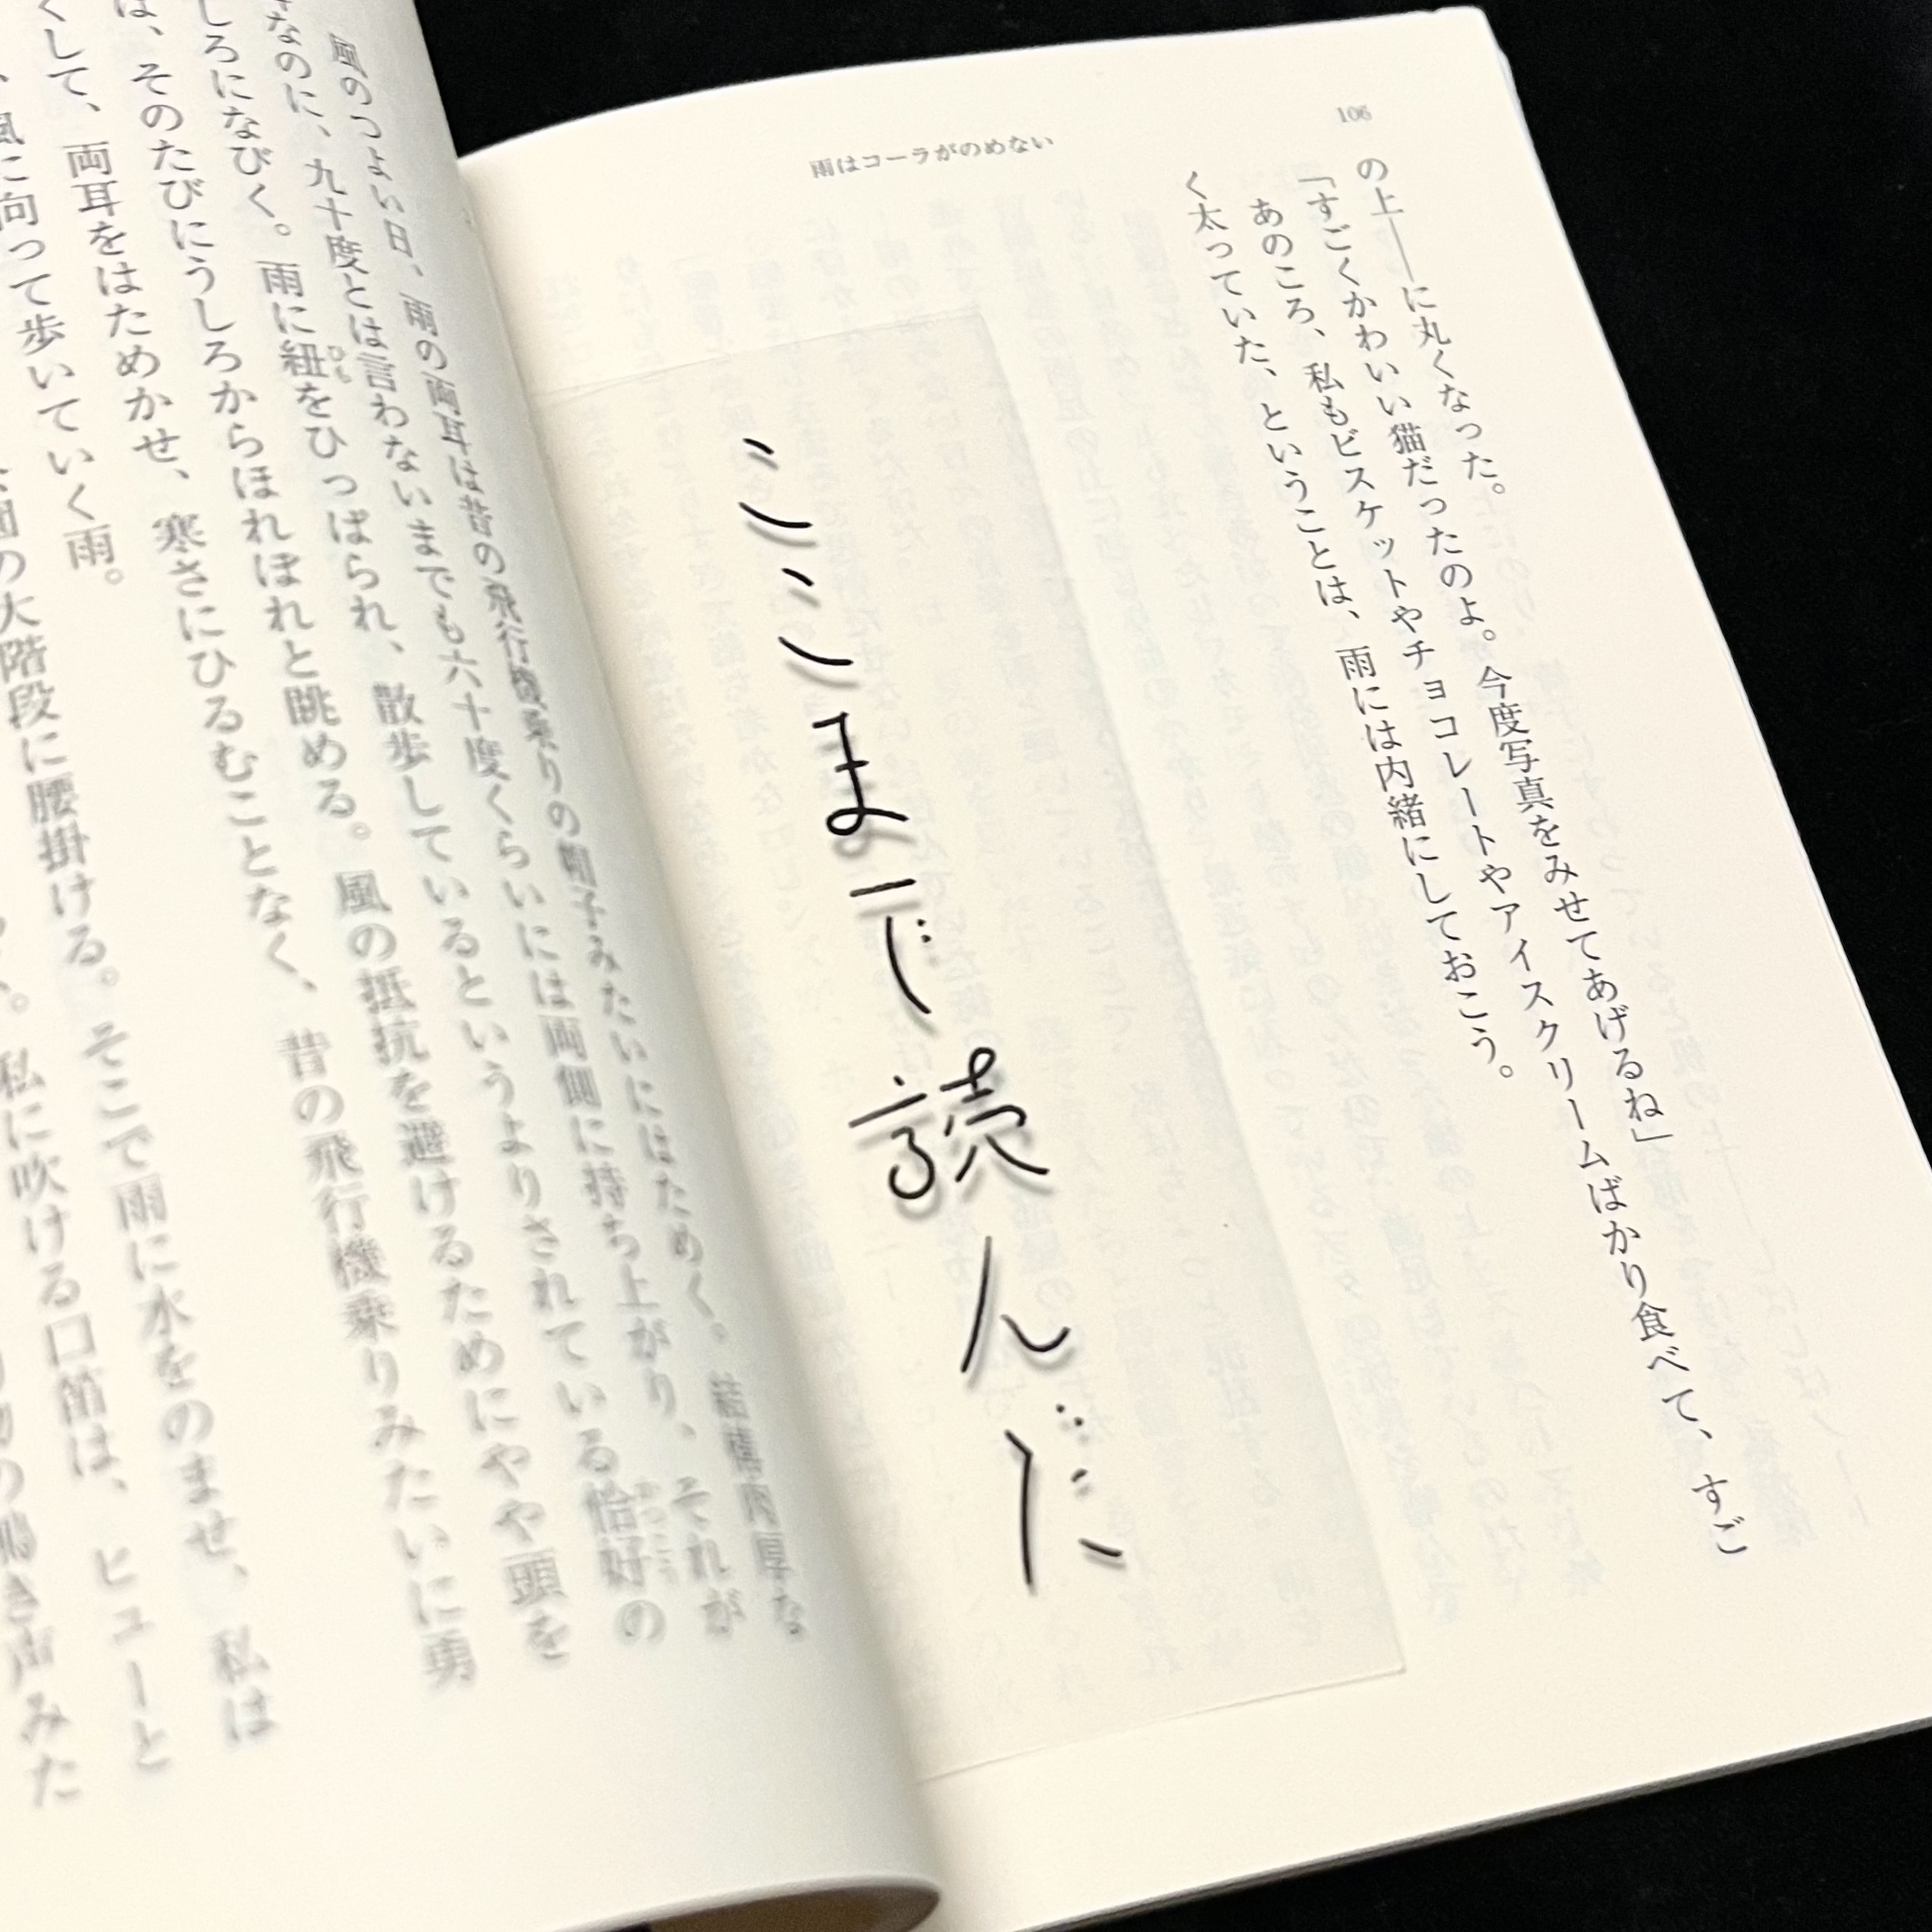 106
雨はコーラがのめない
の上――に丸くなった。
「すごくかわいい猫だったのよ。今度写真をみせてあげるね」
あのころ、私もビスケットやチョコレートやアイスクリームばかり食べて、すご
く太っていた、ということは、雨には内緒にしておこう。
ここまで読んだ
風のつよい日、雨の両耳は昔の飛行機乗りの帽子みたいにはためく。結構肉厚な
なのに、九十度とは言わないまでも六十度くらいには両側に持ち上がり、それが
しろになびく。雨に紐をひっぱられ、散歩しているというよりされている恰好の
は、そのたびにうしろからほれぼれと眺める。風の抵抗を避けるためにやや頭を
くして、両耳をはためかせ、寒さにひるむことなく、昔の飛行機乗りみたいに勇
、風に向って歩いていく雨。
の大階段に腰掛ける。そこで雨に水をのませ、私は
。私に吹ける口笛は、ヒューと
の鳴き声みた